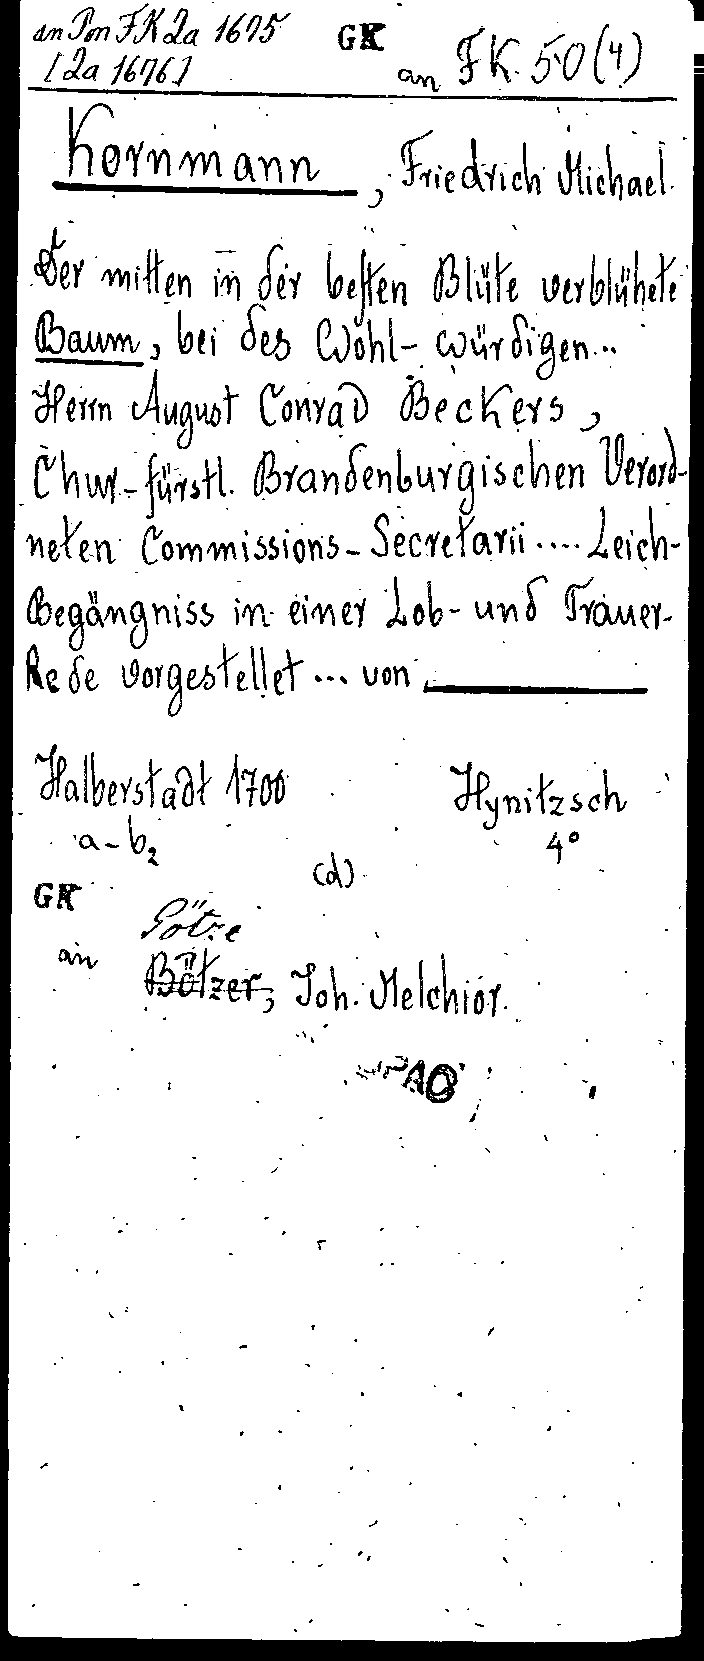 an Pon FK 2a 1675 GK
[2a 1676] an FK. 50 (4)
Kornmann, Friedrich Michael.
Der mitten in der besten Blüte verblühete
Baum, bei des Wohl-würdigen...
Herrn August Conrad Beckers,
Chur-fürstl. Brandenburgischen Verord-
neten Commissions-Secretarii.... Leich-
Begängniss in einer Lob- und Trauer-
Rede vorgestellet... von
Halberstadt 1700 Hynitzsch
a-b2 4°
(d)
GK
Götze
an Bötzer, Joh. Melchior.